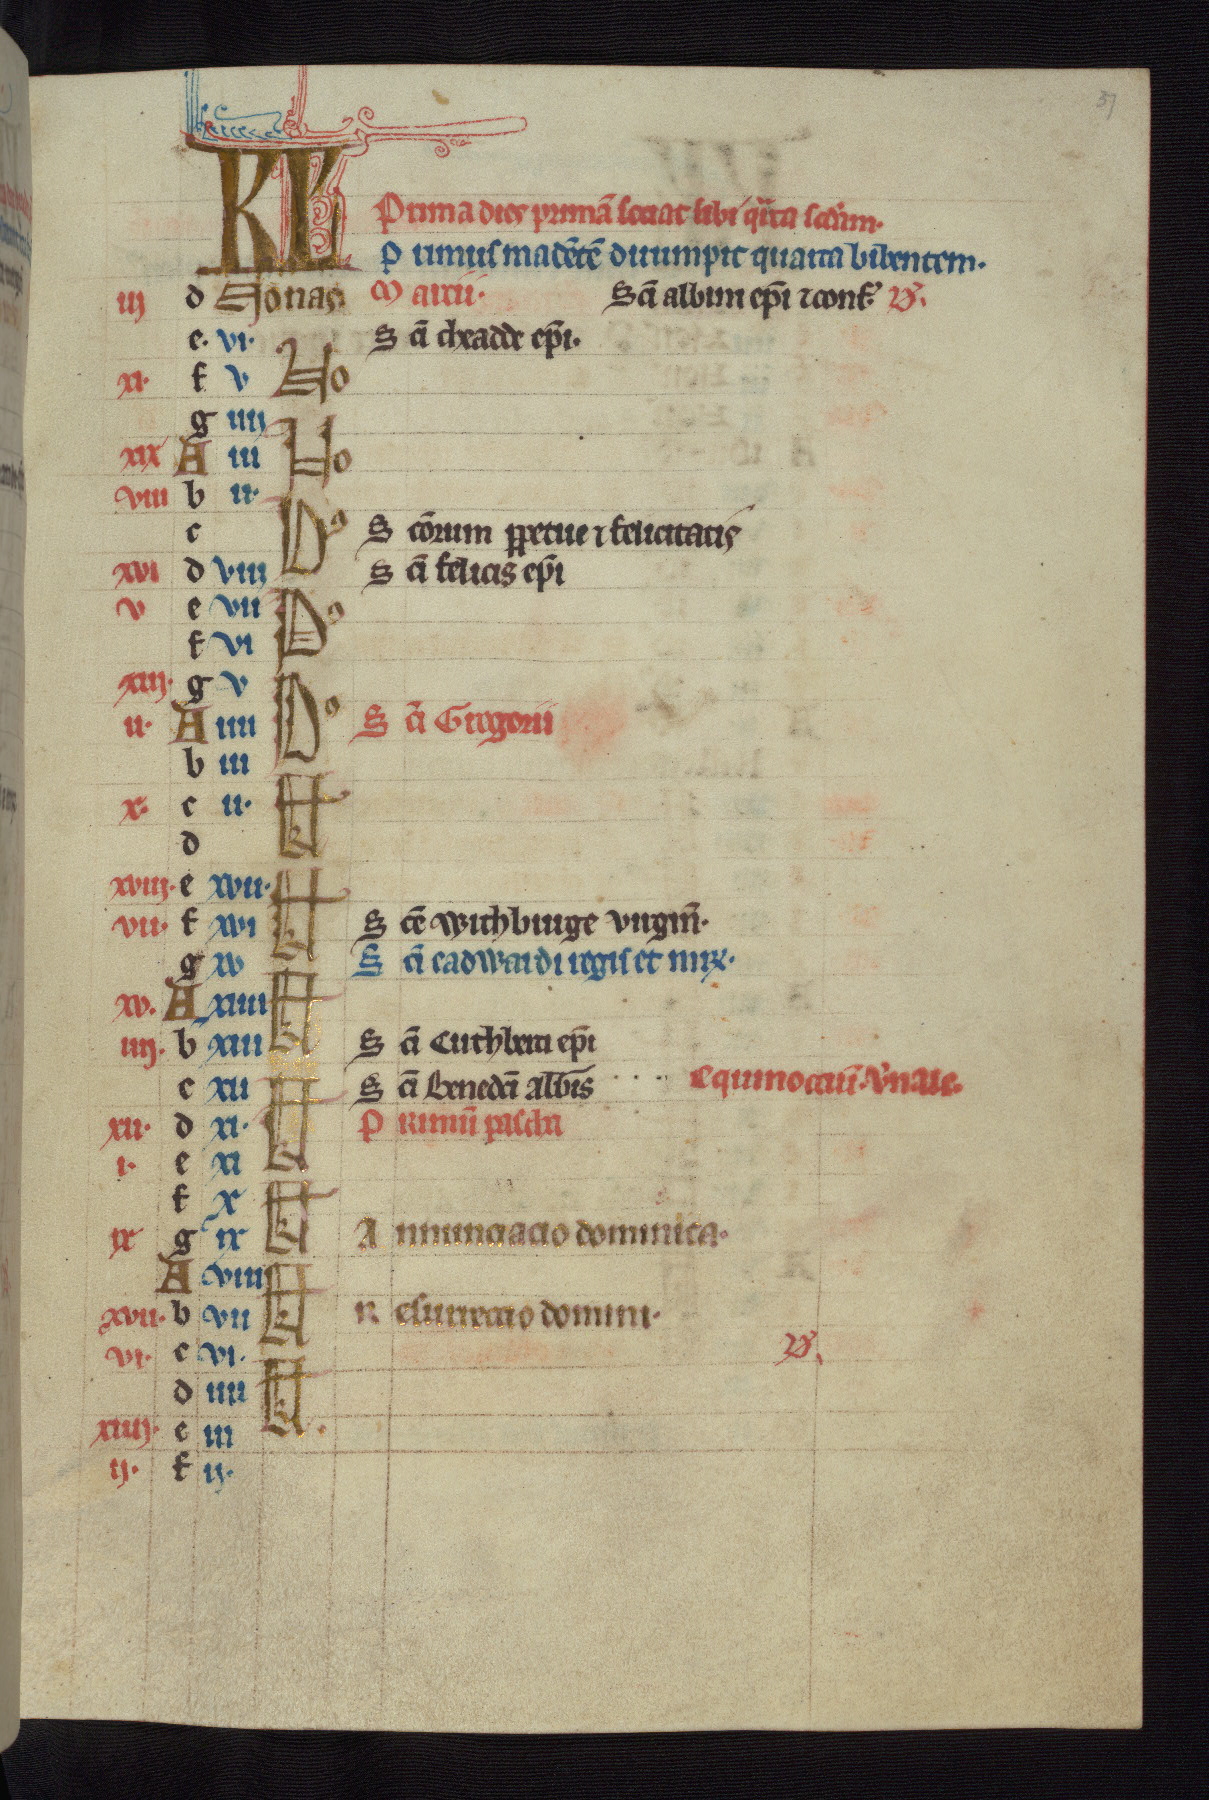 37
KL
Prima dies primā seciat sibi q̄rta scd̄am.
Primus madētē dirumpit quarta bibentem.
iij d Honas Marcii. Sc̄i albini ep̄i ⁊ conf. D.
e. vi. Sc̄i cheadde ep̄i.
xi. f v No
g iiij
xix A iii No
viii b ii.
c No Sc̄orum ꝑpetue ⁊ felicitatis
xvi d viii Sc̄i felicis ep̄i
v e vii Id
f vi
xiii. g v
ii. A iiii Sc̄i Gregorii
b iii
x. c ii.
d
xviij. e xvii. kl
vii. f xvi Sc̄e withburge virgin̄.
g xv Sc̄i eadwardi regis et mr̄x.
xv. A xiiii kl
iiij. b xiii Sc̄i Cuthberti ep̄i
c xii Sc̄i Benedc̄i abb̄is Equinoctiū. v̄nale.
xii. d xi. Primū pascha
i. e xi
f x
ix g ix kl Annunciacio dominica.
A viii
xvii. b vii kl Resurreccio domini.
vi. c vi. D.
d iiii kl
xiiij. e iii
ij. f ij.